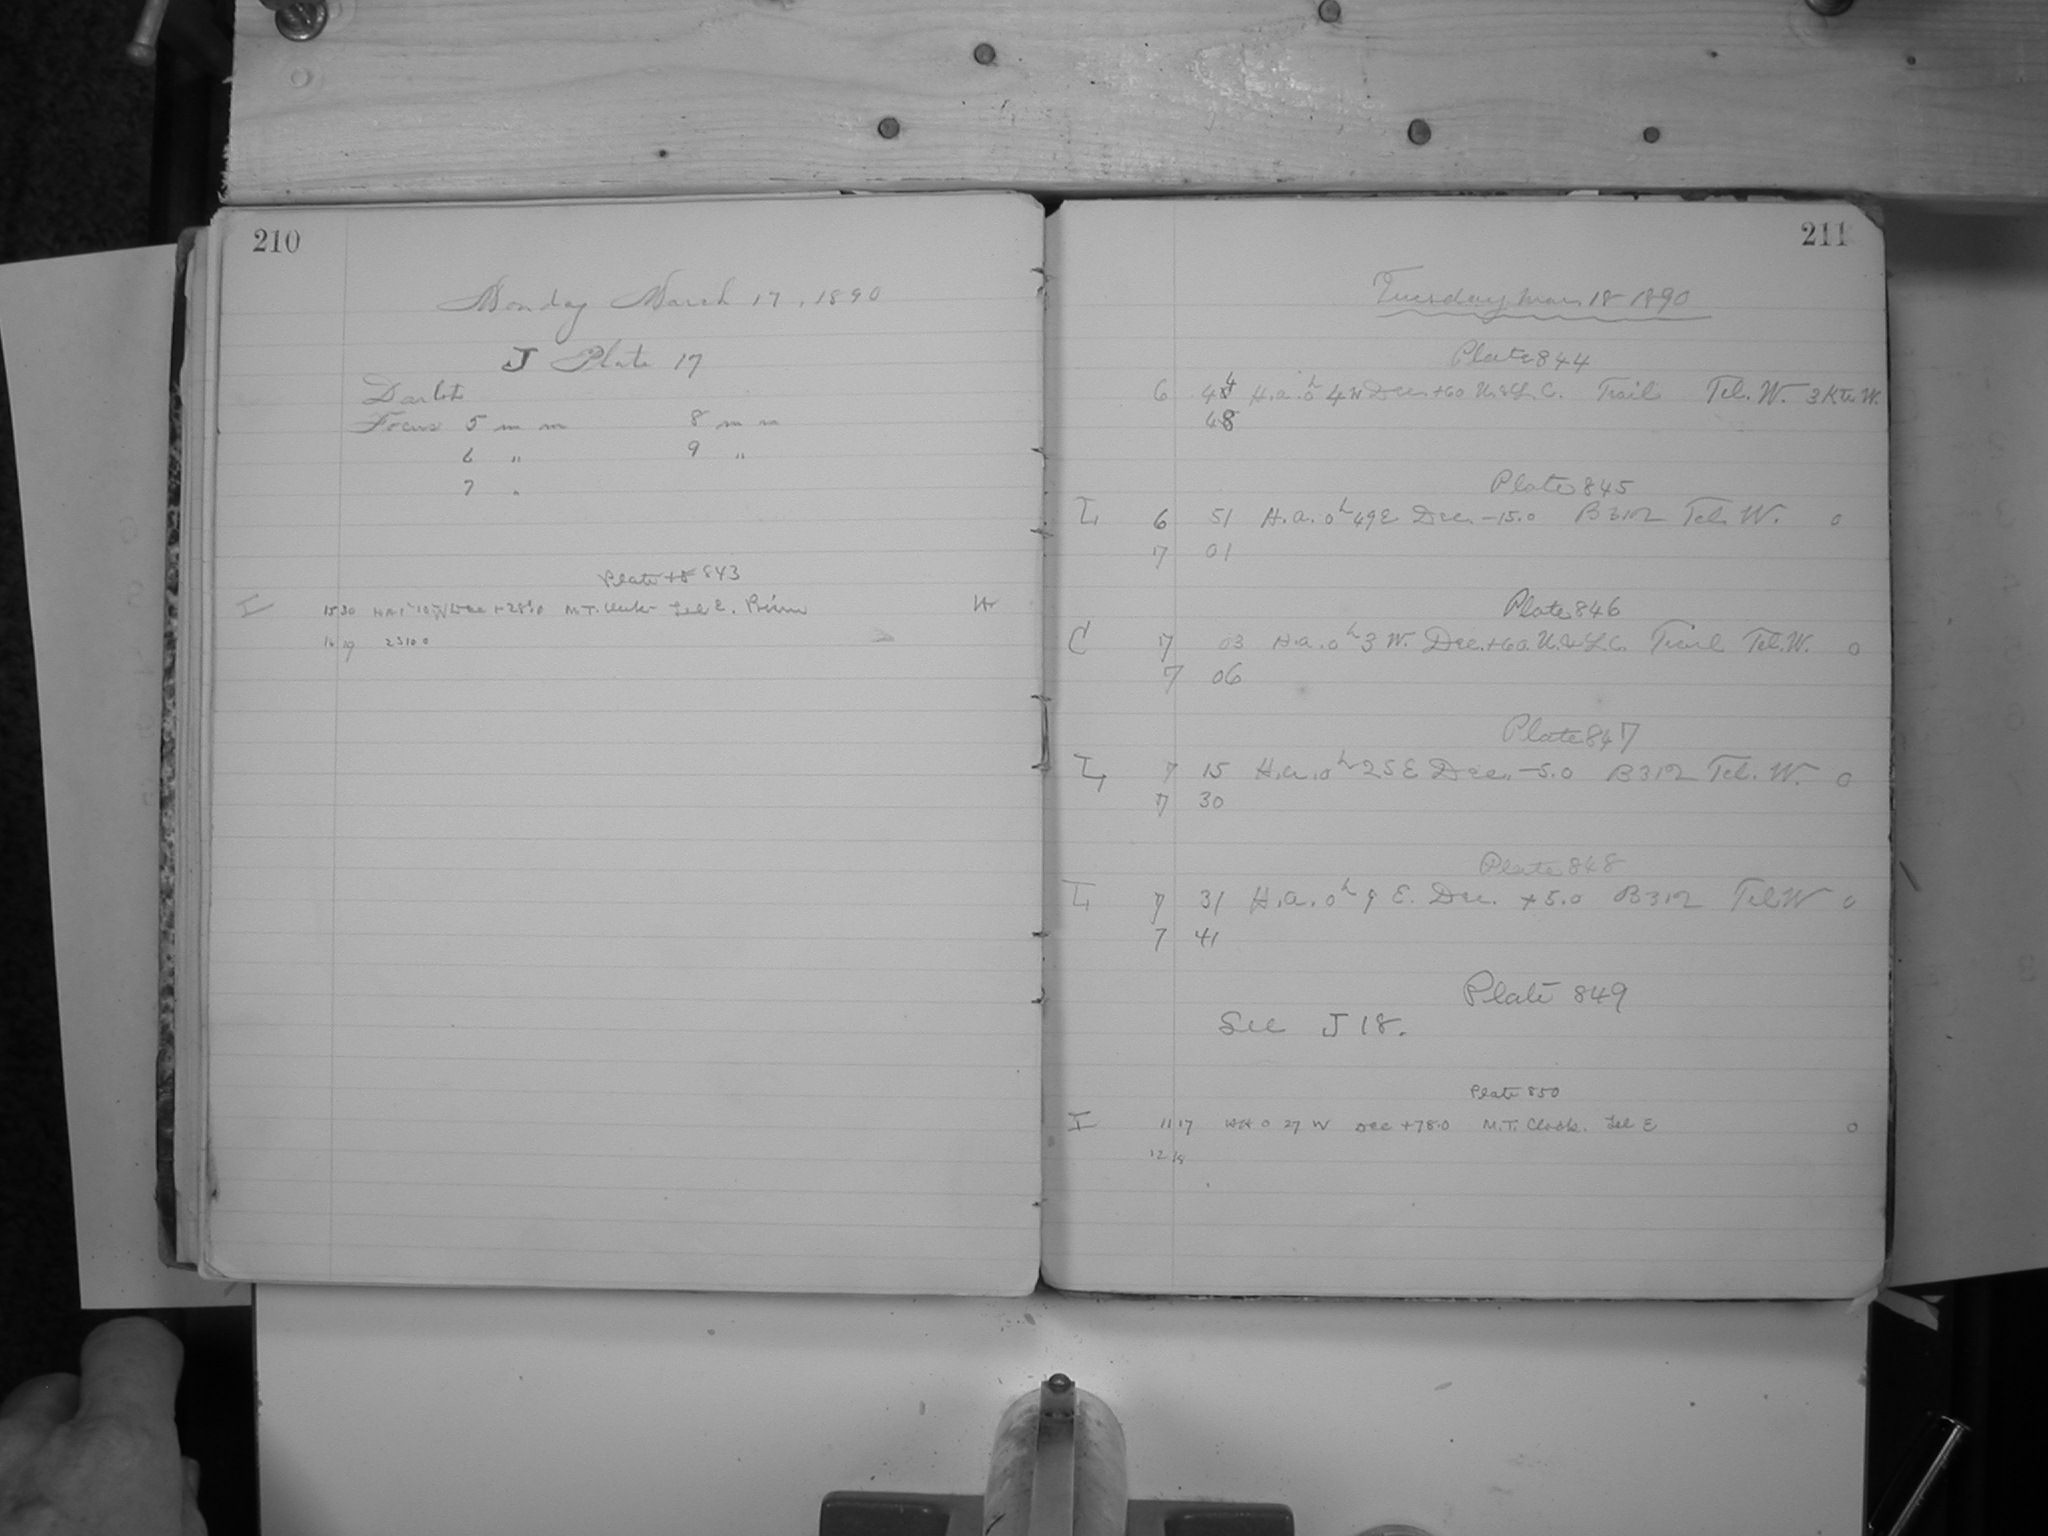 210
Monday March 17, 1890
J Plate 17
Focus 5 m m 8 m m
6 " 9 "
7 "
Plate 843
I 15 30 Dec +28.0 M.T. Clock Tel E. Prism
16 19 23100
211
Tuesday Mar. 18 1890
Plate 844
6 44 H.a. 0h 4 W Dec. +60 U.&L.C. Trail Tel. W.
48
Plate 845
I 6 51 H.a. 0h 49 E Dec. -15.0 B312 Tel. W. 0
7 01
Plate 846
C 7 03 H.a. 0h 3 W. Dec. +60. U.&L.C. Trail Tel. W. 0
7 06
Plate 847
I 7 15 H.a. 0h 25 E Dec. -5.0 B312 Tel. W. 0
7 30
Plate 848
I 7 31 H.a. 0h 9 E. Dec. +5.0 B312 Tel W 0
7 41
Plate 849
See J 18.
Plate 850
I 11 17 HA 0 27 W Dec +78.0 M.T. Clock. Tel E 0
12